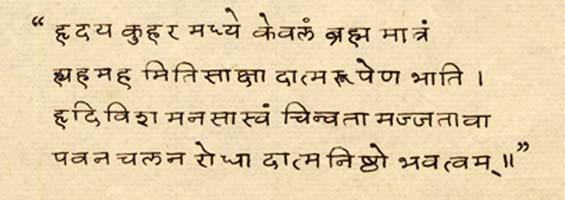 “ हृदय कुहर मध्ये केवलं ब्रह्म मात्रं
ह्यहमह मितिसाक्षा दात्मरूपेण भाति ।
हृदि विश मनसास्वं चिन्वता मज्जतावा
पवन चलन रोधा दात्म निष्ठो भवत्वम् ॥ ”